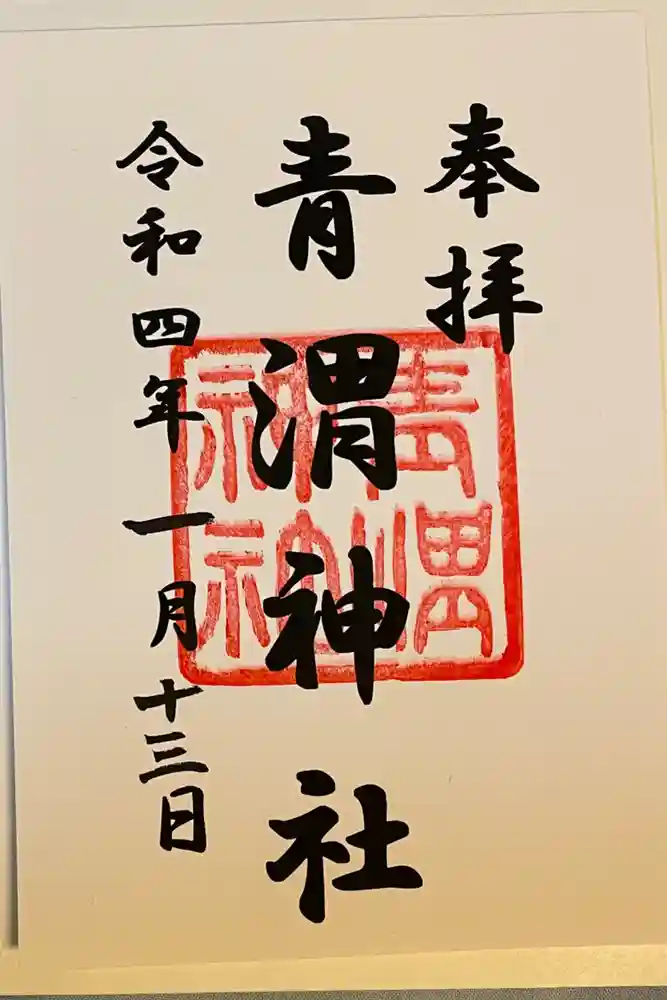 奉拝
青渭神社
令和四年一月十三日
青渭神社